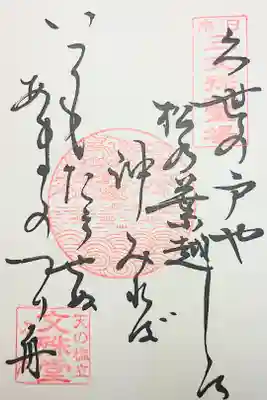 日本
三文殊霊場
久世の戸や
松の葉越しに
沖みれば
いつも
たえせぬ
あまの
つり舟
天の橋立
文殊堂